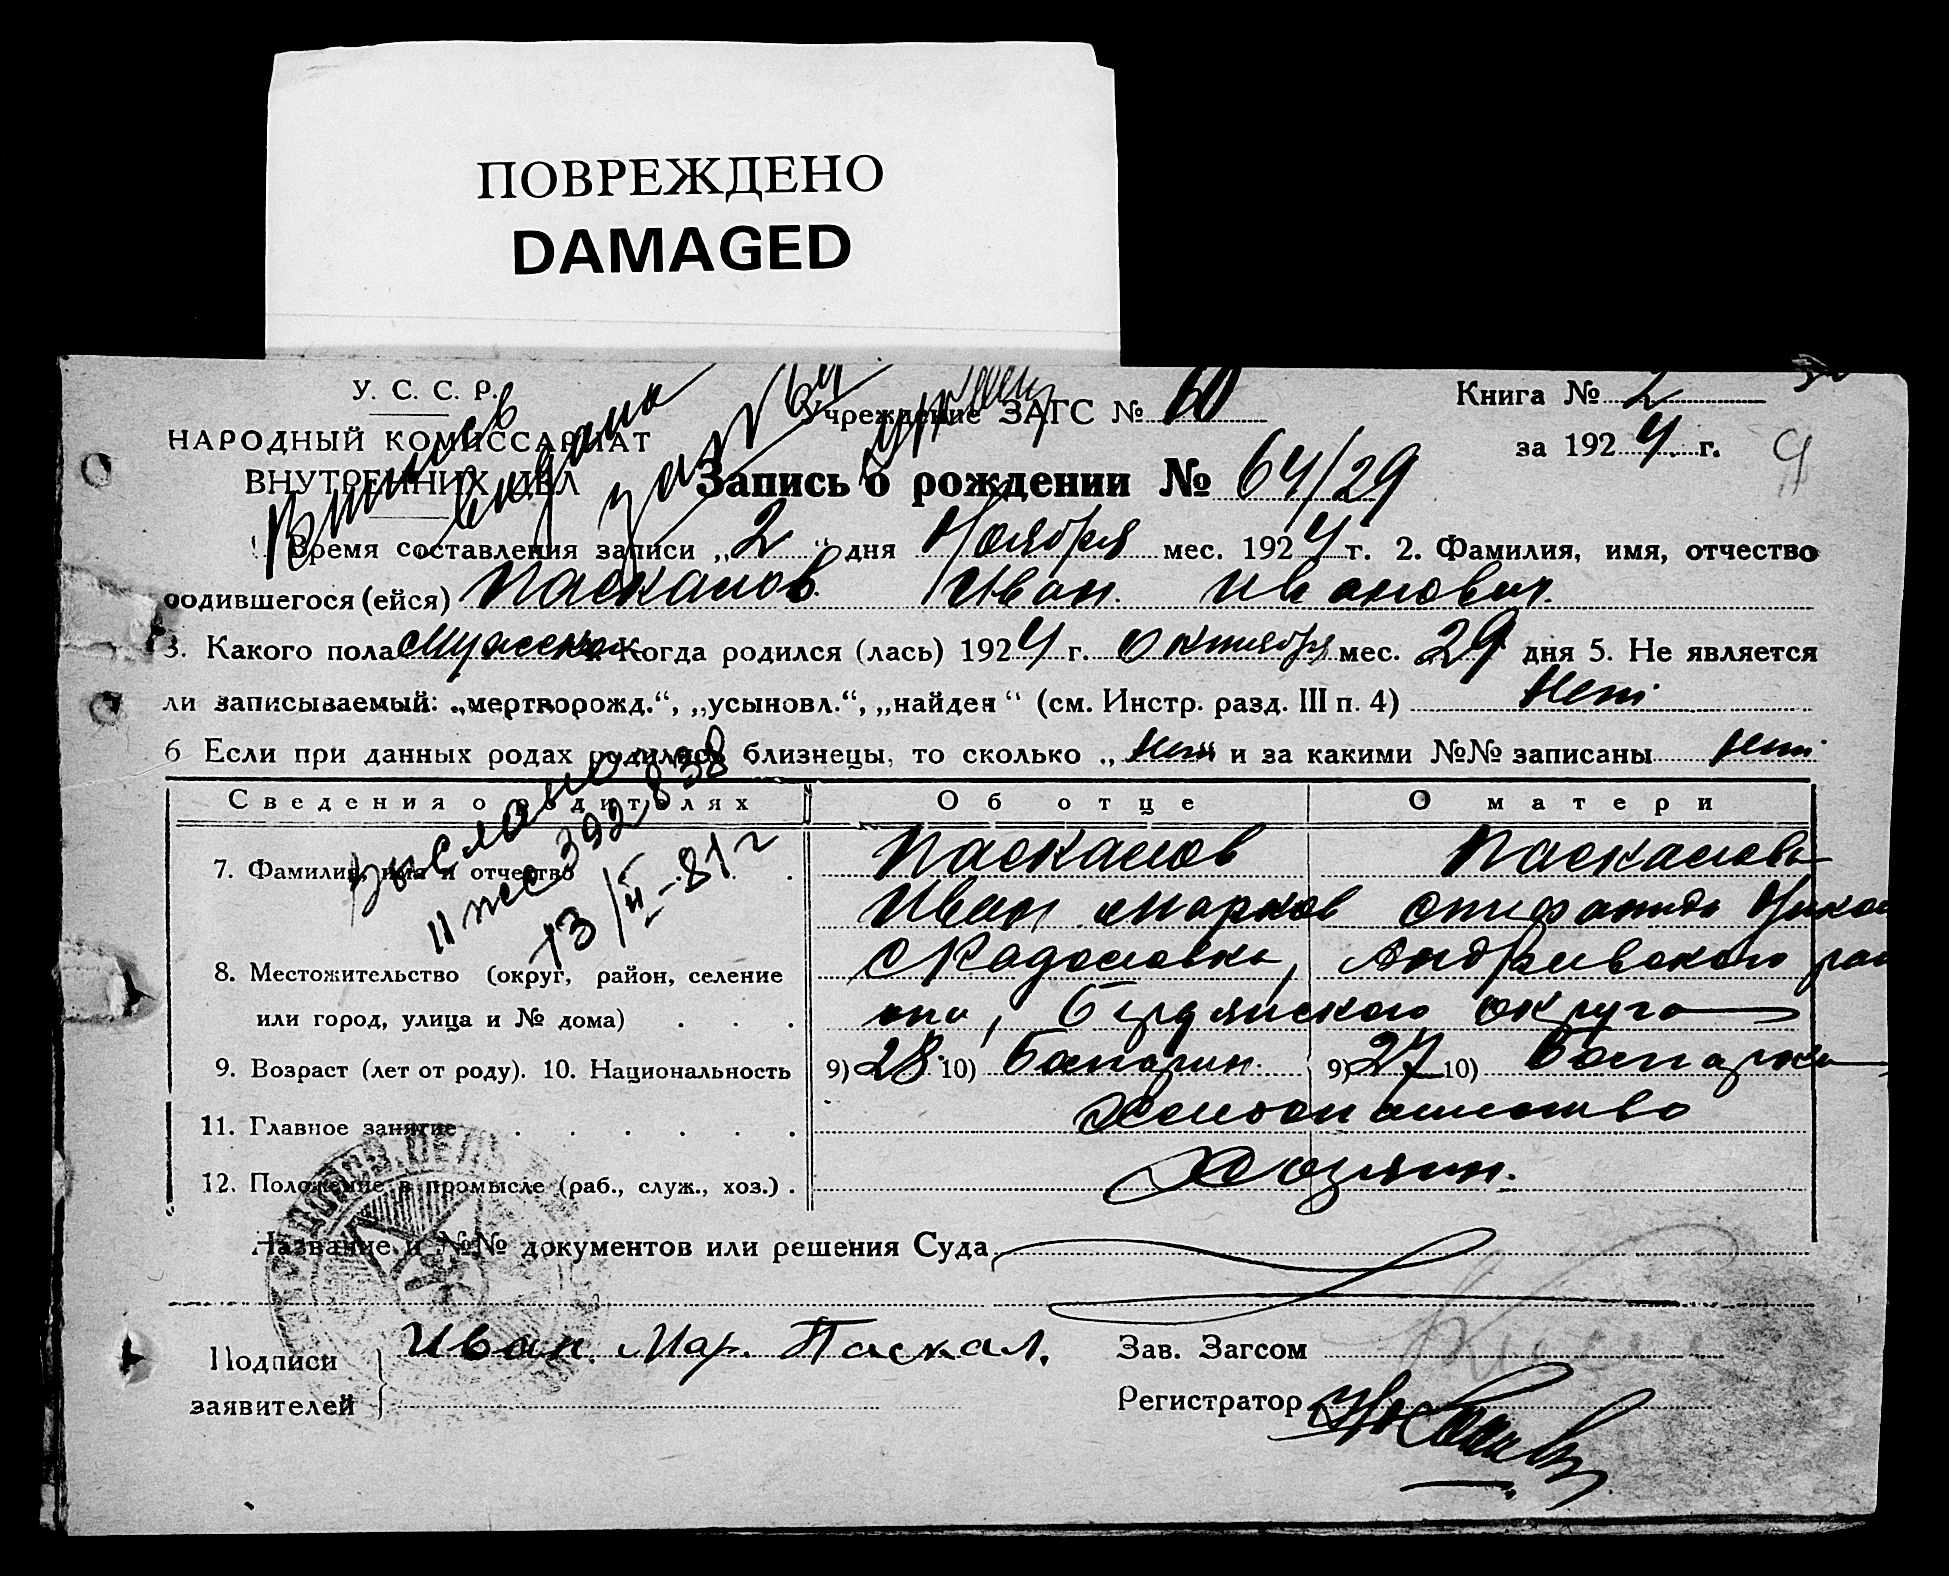 ПОВРЕЖДЕНО
DAMAGED
У. С. С. Р.
НАРОДНЫЙ КОМИССАРИАТ
ВНУТРЕННИХ ДЕЛ
Учреждение ЗАГС № 60
Книга № 2
за 1924 г.
Запись о рождении № 64/29
Время составления записи „2“ дня Ноября мес. 1924 г. 2. Фамилия, имя, отчество
родившегося (ейся) Паскалов Иван Иванович.
3. Какого пола Когда родился (лась) 1924 г. Октября мес. 29 дня 5. Не является
ли записываемый: „мертворожд.“, „усыновл.“, „найден“ (см. Инстр. разд. III п. 4) Нет
6 Если при данных родах родились близнецы, то сколько „Нет и за какими №№ записаны Нет
Сведения о родителях Об отце О матери
7. Фамилия, имя и отчество . . Паскалов Паскалова
Иван Марков
8. Местожительство (округ, район, селение С Радоловка, Андреевского рай
или город, улица и № дома) . . . она, Бердянского округа
9. Возраст (лет от роду). 10. Национальность 9) 28 10) Болгарин 9) 27 10) Болгарка
11. Главное занятие . . . . . . Хлебопашество
12. Положение в промысле (раб., служ., хоз.) . Хозяин.
Название и №№ документов или решения Суда
Подписи
заявителей
Иван. Мар. Паскал.
Зав. Загсом
Регистратор
выслано
392,838
13/II-81 г